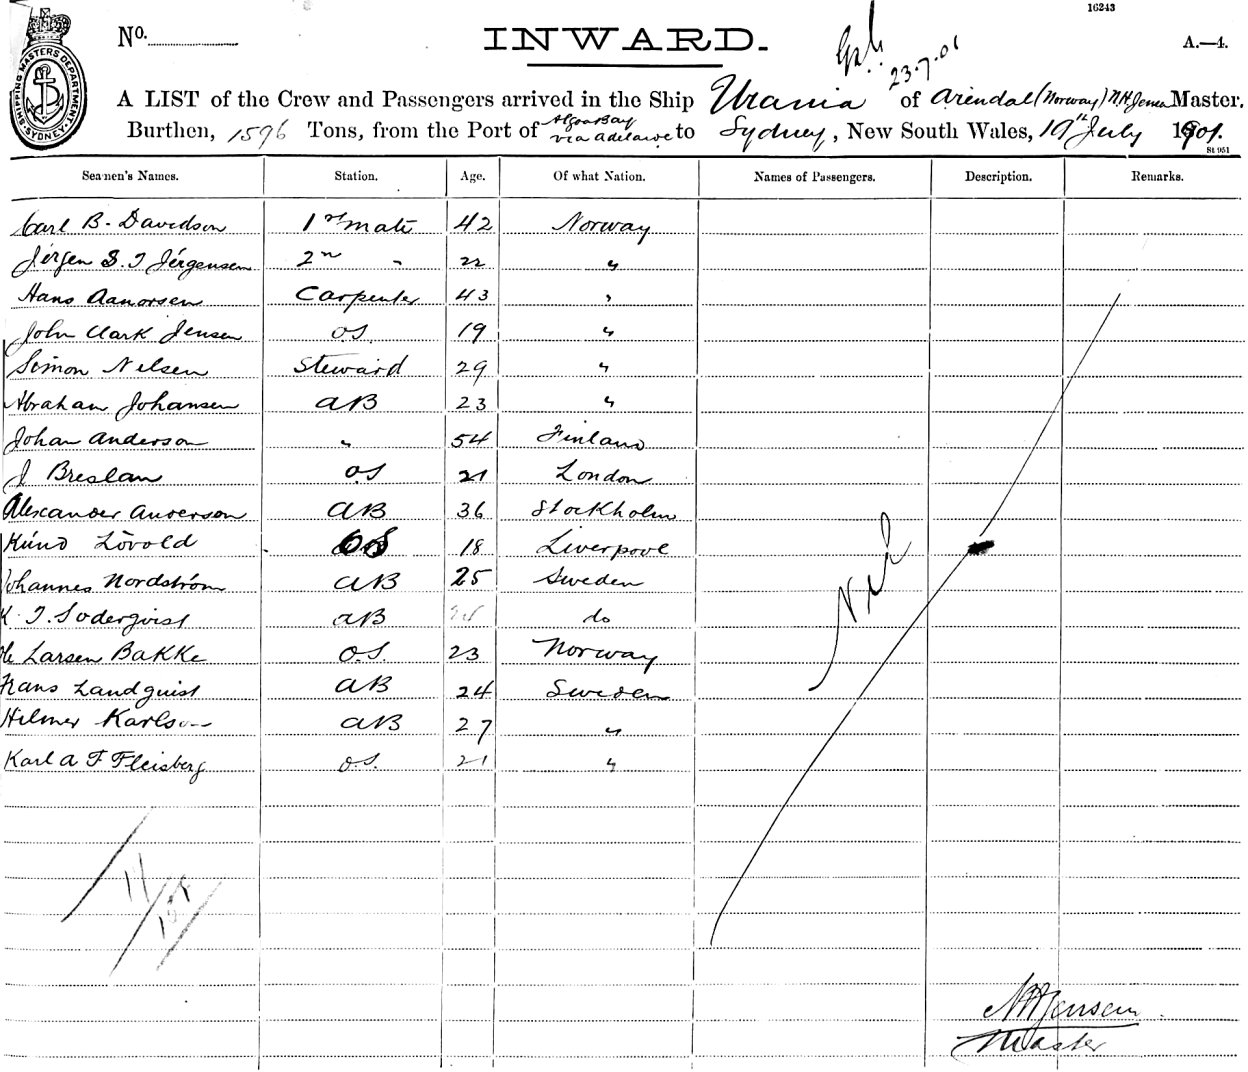 16243
No.
INWARD.
23.7.01
A.—4.
SHIPPING MASTERS DEPARTMENT SYDNEY
A LIST of the Crew and Passengers arrived in the Ship Urania of Arendal (Norway) N.H. Jensen Master.
Burthen, 1596 Tons, from the Port of Algoa Bay via Adelaide to Sydney, New South Wales, 19th July 1901.
St 951
Seamen's Names. Station. Age. Of what Nation. Names of Passengers. Description. Remarks.
Carl B. Davidson 1st mate 42 Norway
Jörgen S. T Jörgensen 2n " 22 "
Hans Aanorsen Carpenter 43 "
John Clark Jensen OS. 19 "
Simon Nelsen Steward 29 "
Abraham Johansen AB 23 "
Johan Anderson " 54 Finland
J Breslan OS 21 London
Alexander Anderson AB 36 Stockholm
Künd Lövold OS 18 Liverpool
Johannes Nordström AB 25 Sweden
K. T. Soderqvist AB do
Ole Larsen Bakke O.S. 23 Norway
Frans Landquist AB 24 Sweden
Hilmer Karlson AB 27 "
Karl A F Fleisberg O.S. 21 "
Nil
17
N H Jensen
Master